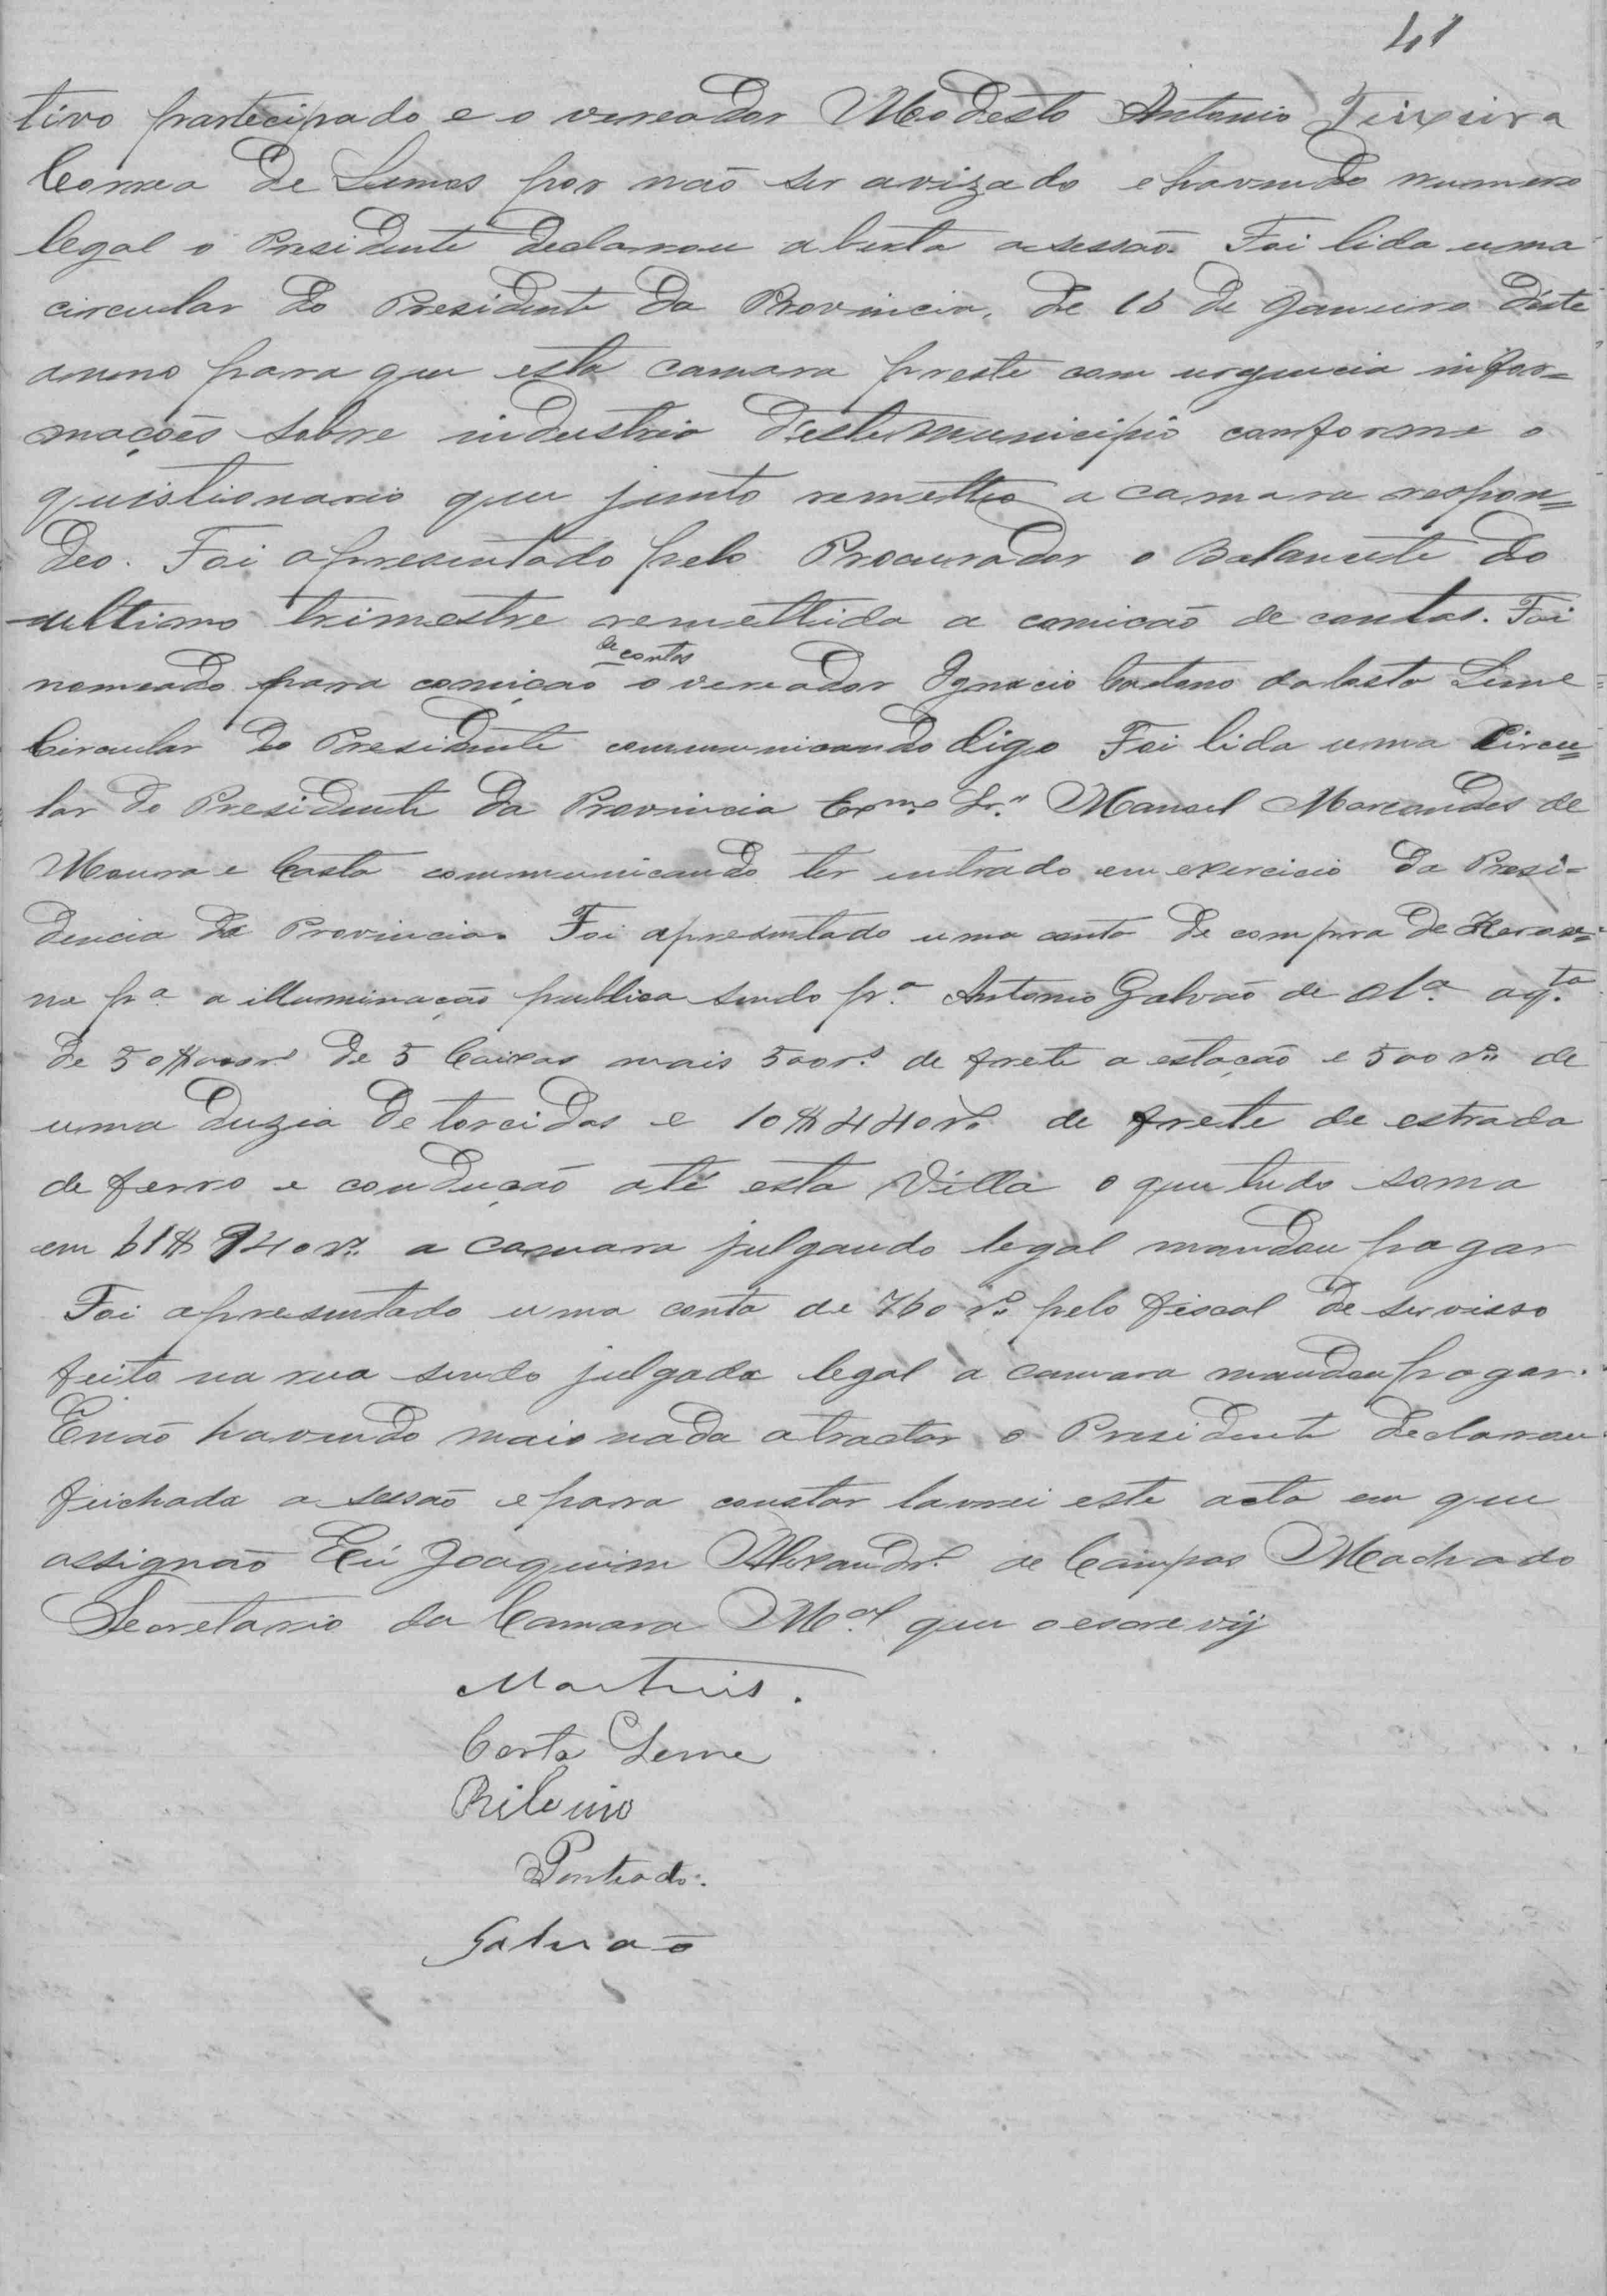 41
tivo partecipado e o vereador Modesto Antonio Teixeira
Correa de Lemos por não ser avizado e havendo numero
legal o Presidente declarou aberta a sessão. Foi lida uma
circular do Presidente da Provincia, de 16 de Janeiro deste
anno para que esta camara preste com urgencia infor=
mações sobre industria d'este municipio conforme o
questionario que junto remetteo a camara respon=
deo. Foi apresentado pelo Procurador o Balancete do
ultimo trimestre remettida a comicão de contas. Foi
de contas
nomeado para comição o vereador Ignacio Caetano da Costa Leme
Circular do Presidente communicando digo Foi lida uma Circu=
lar do Presidente da Provincia Exmo Sr. Manoel Marcondes de
Moura e Costa communicando ter entrado em exercicio da Presi=
dencia da Provincia. Foi apresentado uma conta de compra de Kerose=
ne pa a illuminação publica sendo pa Antonio Galvão de Ala aqta
de 50$000rs de 5 Caixas mais 500rs de frete a estação e 500 rs de
uma duzia de torcidas e 10$440rs de frete de estrada
de ferro e condução até esta Villa o que tudo soma
em 61$940rs a camara julgando legal mandou pagar
Foi apresentado uma conta de 760 rs pelo fiscal de servisso
feito na rua sendo julgada legal a camara mandou pagar.
E não havendo mais nada a tractar o Presidente declarou
feichada a sessão e para constar lavrei este acta em que
assignão Eu Joaquim Alexandre de Campos Machado
Secretario da Camara Mal que o escrevij
Martins.
Costa Leme
Ribeiro
Penteado.
Galvão